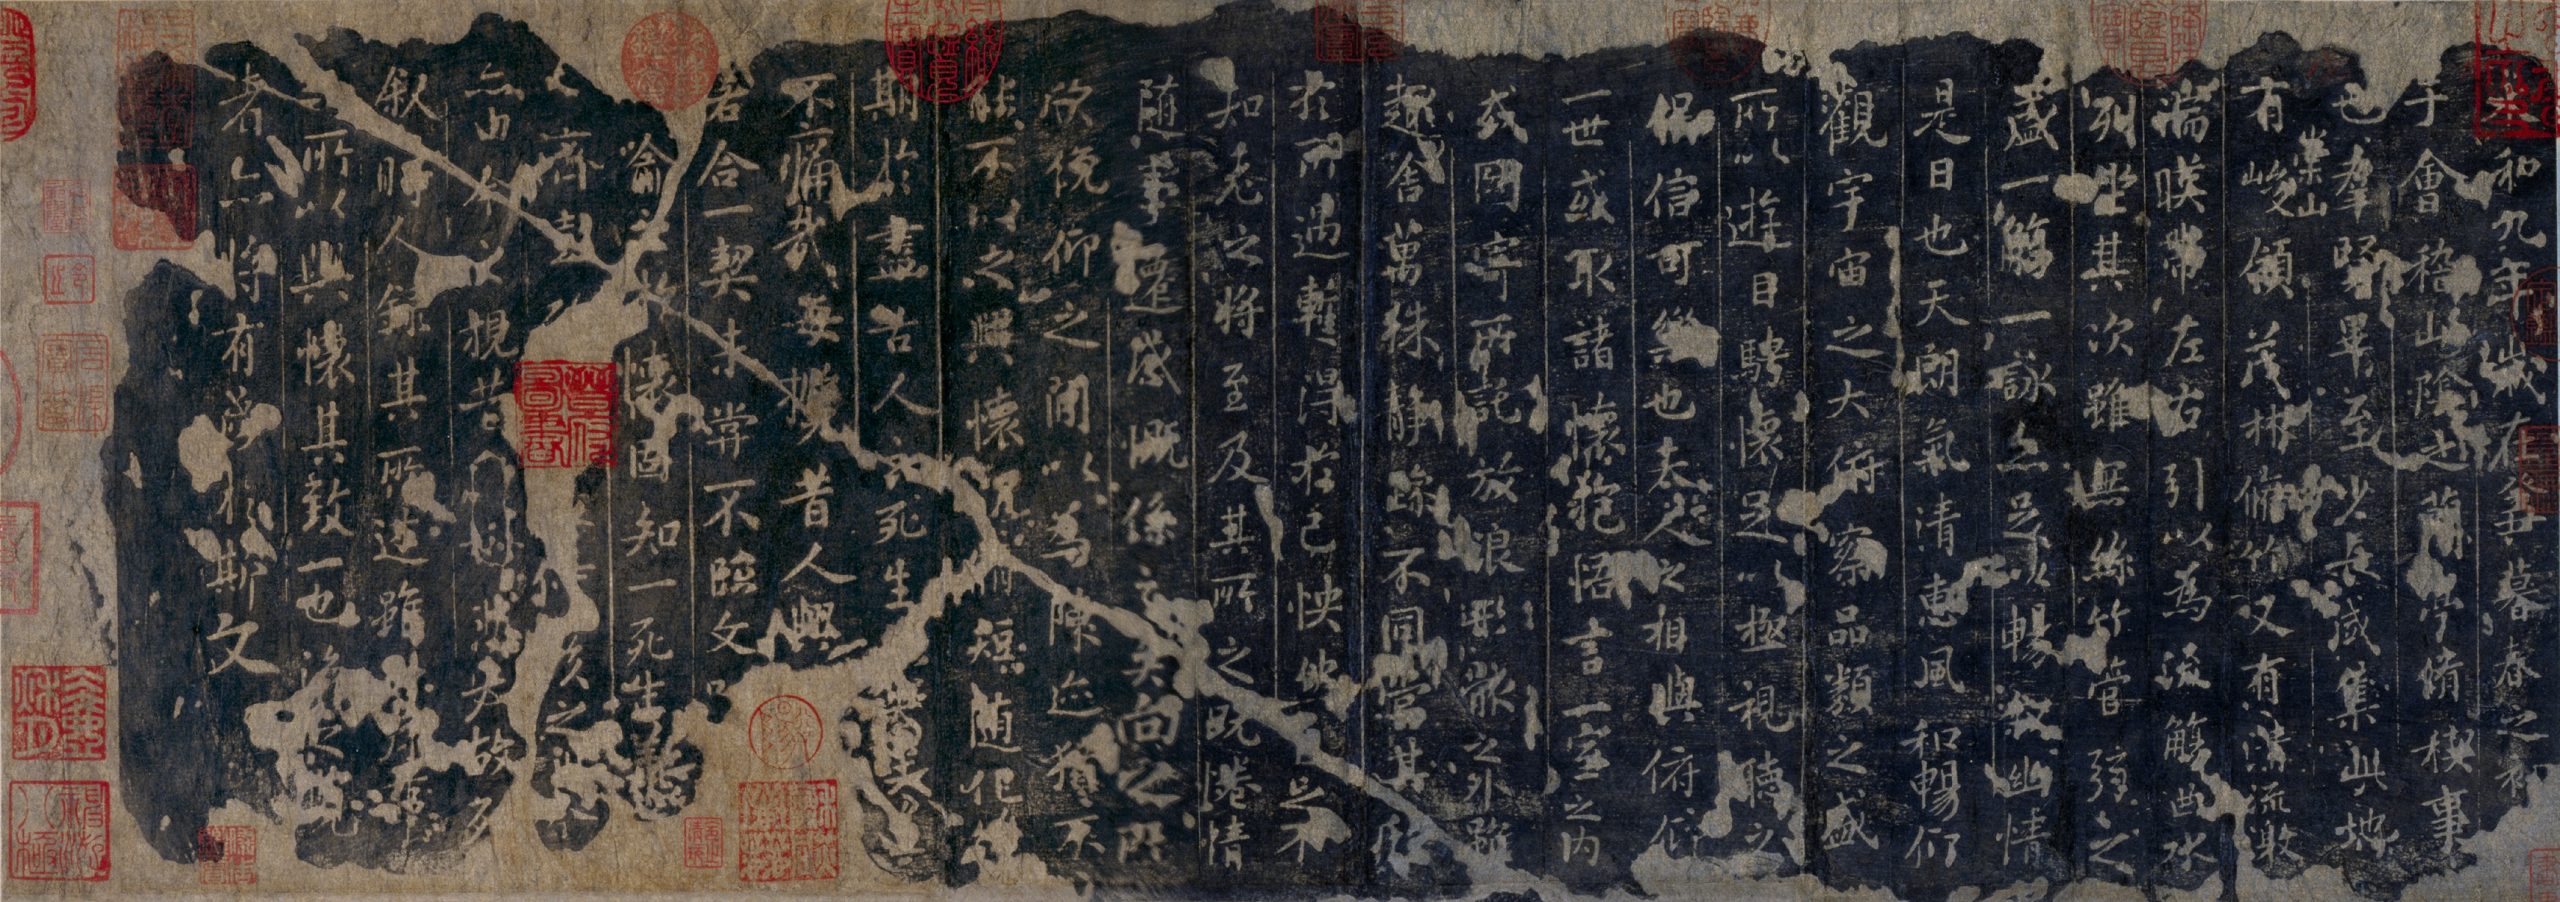 永和九年歲在癸丑暮春之初
于會稽山陰之蘭亭脩稧事
也羣賢畢至少長咸集此地
有崇山峻領茂林脩竹又有清流激
湍暎帶左右引以為流觴曲水
列坐其次雖無絲竹管弦之
盛一觴一詠亦足以暢敘幽情
是日也天朗氣清惠風和暢仰
觀宇宙之大俯察品類之盛
所以遊目騁懷足以極視聽之
娛信可樂也夫人之相與俯仰
一世或取諸懷抱悟言一室之內
或因寄所託放浪形骸之外雖
趣舍萬殊靜躁不同當其欣
於所遇暫得於己怏然自足不
知老之將至及其所之既惓情
隨事遷感慨係之矣向之所
欣俛仰之閒以為陳迹猶不
能不以之興懷況脩短隨化終
期於盡古人云死生大矣
不痛哉每攬昔人興
若合一契未嘗不臨文
喻之於懷固知一死生為
齊彭後之視
亦由今之視昔悲夫故列
敘時人錄其所述雖世殊事
所以興懷其致一也後之攬
者亦將有感於斯文